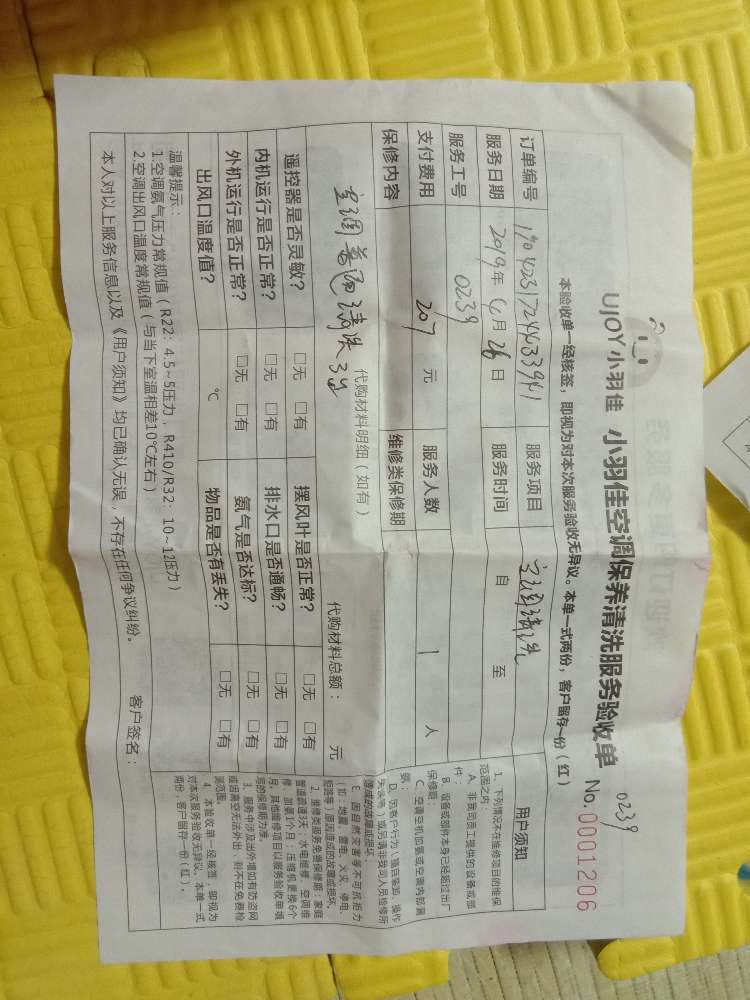 UJOY小羽佳 小羽佳空调保养清洗服务验收单
0239
No.0001206
本验收单一经核签，即视为对本次服务验收无异议。本单一式两份，客户留存一份（红）
订单编号 服务项目 空调清洗
服务日期 2019年6月26日 服务时间 自 至
服务工号 0239
支付费用 207 元 服务人数 1 人
保修内容 维修类保修期
代购材料明细（如有） 代购材料总额： 元
清洗3台
遥控器是否灵敏？ □无 □有 摆风叶是否正常？ □无 □有
内机运行是否正常？ □无 □有 排水口是否通畅？ □无 □有
外机运行是否正常？ □无 □有 氨气是否达标？ □无 □有
出风口温度值？ ℃ 物品是否有丢失？ □无 □有
温馨提示：
1.空调氨气压力常规值（R22：4.5~5压力，R410/R32：10~12压力）
2.空调出风口温度常规值（与当下室温相差10℃左右）
本人对以上服务信息以及《用户须知》均已确认无误，不存在任何争议纠纷。 客户签名：
用户须知
1、下列情况不在维修项目的维保
范围之内：
A、非我司员工提供的设备或部
件；
B、设备或部件本身已经超过出厂
保修期；
C、空调空机加氨或空调内部漏
氨；
D、因客户行为（擅自修如，操作
失误等）或另请非我司人员检修所
造成的故障或损坏；
E、因自然灾害等不可抗拒力
（如：地震，雷电，火灾，停电，
短路等）原因造成的故障或损坏。
2、维修类服务免费保修期：家庭
管道疏通3天；水电维修、空调维
修、加氨1个月；压缩机更换6个
月。其他维修项目以服务验收单填
写的保修期为准。
3、服务中涉及出外墙如有防盗网
或因高空无法外出，则不在免费检
测范围。
4、本验收单一经核签，即视为
对本次服务验收无异议。本单一式
两份，客户留存一份（红）。